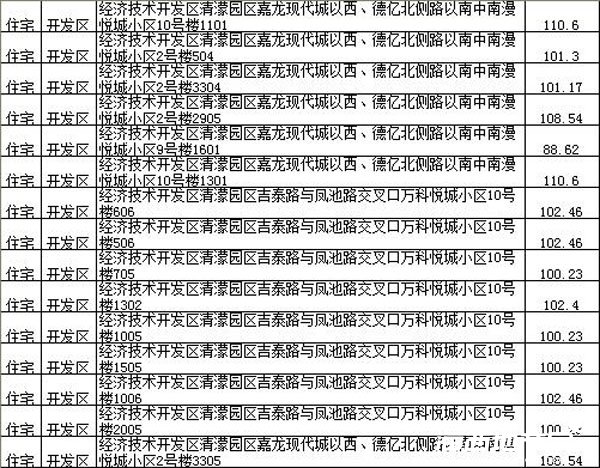 住宅 开发区 经济技术开发区清濛园区嘉龙现代城以西、德亿北侧路以南中南漫
悦城小区10号楼1101 110.6
住宅 开发区 经济技术开发区清濛园区嘉龙现代城以西、德亿北侧路以南中南漫
悦城小区2号楼504 101.3
住宅 开发区 经济技术开发区清濛园区嘉龙现代城以西、德亿北侧路以南中南漫
悦城小区2号楼3304 101.17
住宅 开发区 经济技术开发区清濛园区嘉龙现代城以西、德亿北侧路以南中南漫
悦城小区2号楼2905 108.54
住宅 开发区 经济技术开发区清濛园区嘉龙现代城以西、德亿北侧路以南中南漫
悦城小区9号楼1601 88.62
住宅 开发区 经济技术开发区清濛园区嘉龙现代城以西、德亿北侧路以南中南漫
悦城小区10号楼1301 110.6
住宅 开发区 经济技术开发区清濛园区吉泰路与凤池路交叉口万科悦城小区10号
楼606 102.46
住宅 开发区 经济技术开发区清濛园区吉泰路与凤池路交叉口万科悦城小区10号
楼506 102.46
住宅 开发区 经济技术开发区清濛园区吉泰路与凤池路交叉口万科悦城小区10号
楼705 100.23
住宅 开发区 经济技术开发区清濛园区吉泰路与凤池路交叉口万科悦城小区10号
楼1302 102.4
住宅 开发区 经济技术开发区清濛园区吉泰路与凤池路交叉口万科悦城小区10号
楼1005 100.23
住宅 开发区 经济技术开发区清濛园区吉泰路与凤池路交叉口万科悦城小区10号
楼1505 100.23
住宅 开发区 经济技术开发区清濛园区吉泰路与凤池路交叉口万科悦城小区10号
楼1006 102.46
住宅 开发区 经济技术开发区清濛园区吉泰路与凤池路交叉口万科悦城小区10号
楼2005 100.
住宅 开发区 经济技术开发区清濛园区嘉龙现代城以西、德亿北侧路
悦城小区2号楼3305 108.54